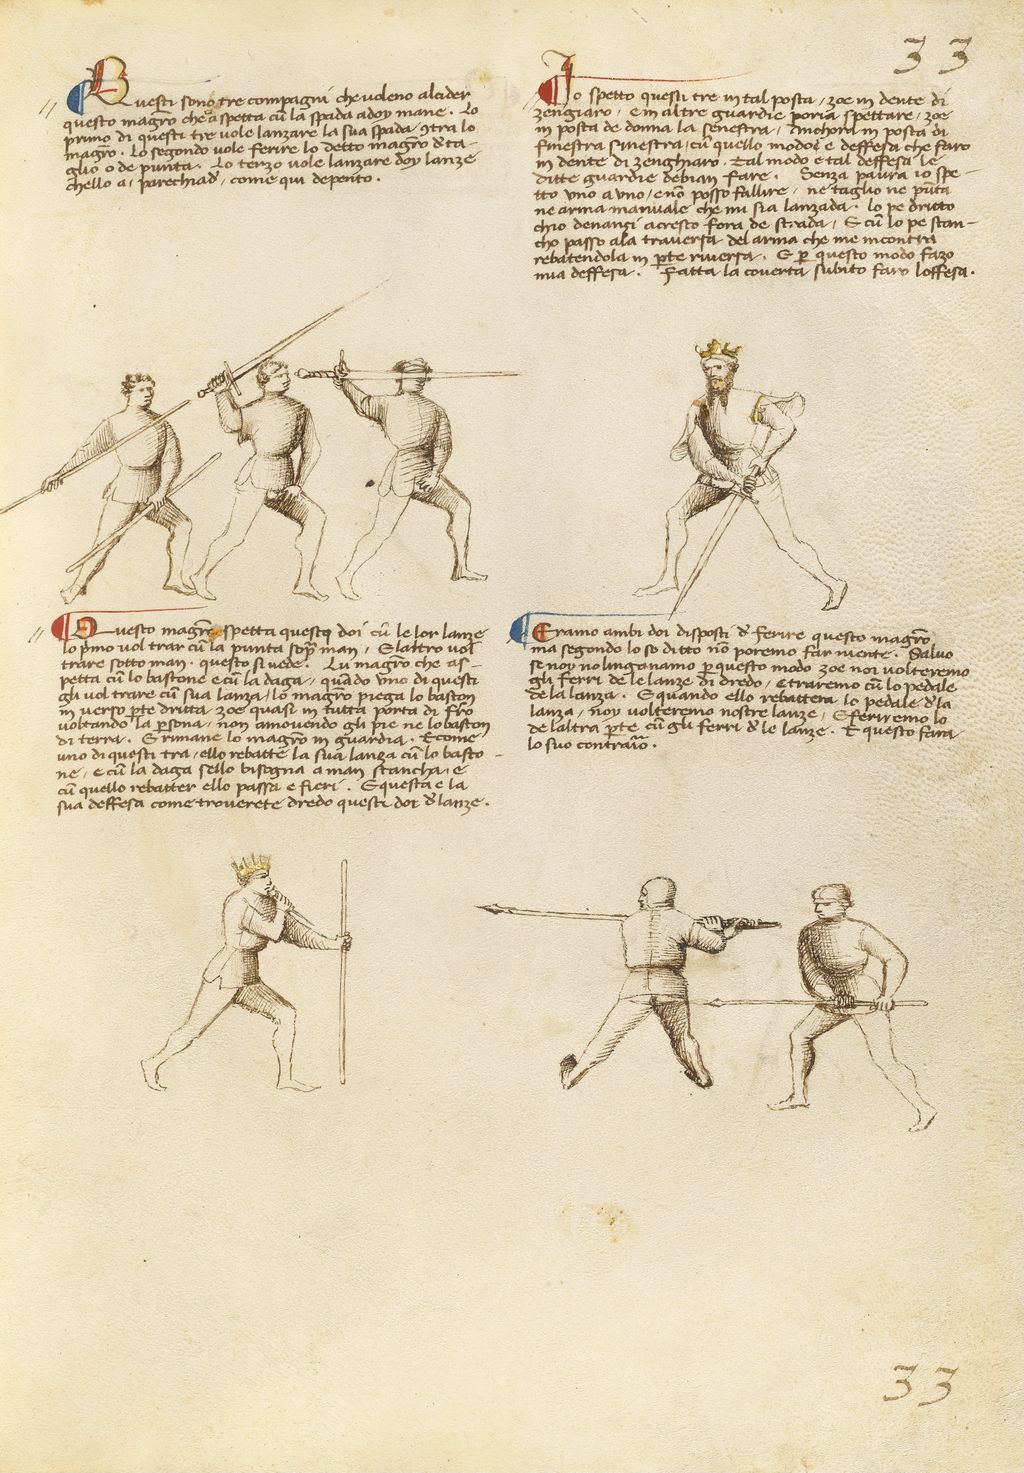 33
Questi sono tre compagni che voleno alcider
questo magro che aspetta cū la spada a doy mane. Lo
primo di questi tre vole lanzare la sua spada ɔtra lo
magro. Lo segondo vole ferire lo detto magro d'ta-
glio o de punta. Lo terzo vole lanzare doy lanze
ch'ello a, parechiad', come qui depento.
Io spetto questi tre in tal posta, zoe in dente di
zengiaro, e in altre guardie poria spettare, zoe
in posta de donna la senestra, Anchora in posta di
finestra sinestra, cū quello modo e deffesa che faro
in dente di zenghiaro. Tal modo e tal deffesa le
ditte guardie debian fare. Senza paura io spe-
tto uno a uno, e nō posso fallire, ne taglio ne pūta
ne arma manuale che mi sia lanzada. lo pe dritto
ch'io denanzi acresco fora de strada, E cū lo pe stan-
cho passo ala traversa del arma che me incontra
rebatendola in pte riversa. E p questo modo fazo
mia deffesa. Fatta la coverta subito faro l'offesa.
Questo magro spetta questi doi cū le lor lanze
lo pmo vol trar cū la punta sopra man, E l'altro vol
trare sotto man. questo si vede. Lu magro che as-
petta cū lo bastone e cū la daga, quādo uno di questi
gli vol trare cū sua lanza, lo magro piega lo baston
in verso pte dritta, zoe quasi in tutta porta di fr̄o
voltando la psona, non amovendo gli pie ne lo baston
di terra. E rimane lo magro in guardia. E come
uno di questi tra, ello rebatte la sua lanza cū lo basto-
ne, e cū la daga s'ello bisogna a man stancha, e
cū quello rebatter ello passa e fieri. E questa e la
sua deffesa come troverete dredo questi doi d'lanze.
Eramo ambi doi disposti d' ferire questo magro
ma segondo lo so ditto nō poremo far niente. Salvo
se noy no l'inganamo p questo modo zoe noi volteremo
gli ferri de le lanze di dredo, e traremo cū lo pedale
de la lanza. E quando ello rebattera lo pedale d'la
lanza, noy volteremo nostre lanze, E feriremo lo
de l'altra pte cū gli ferri d' le lanze. E questo fara
lo suo contrario.
33